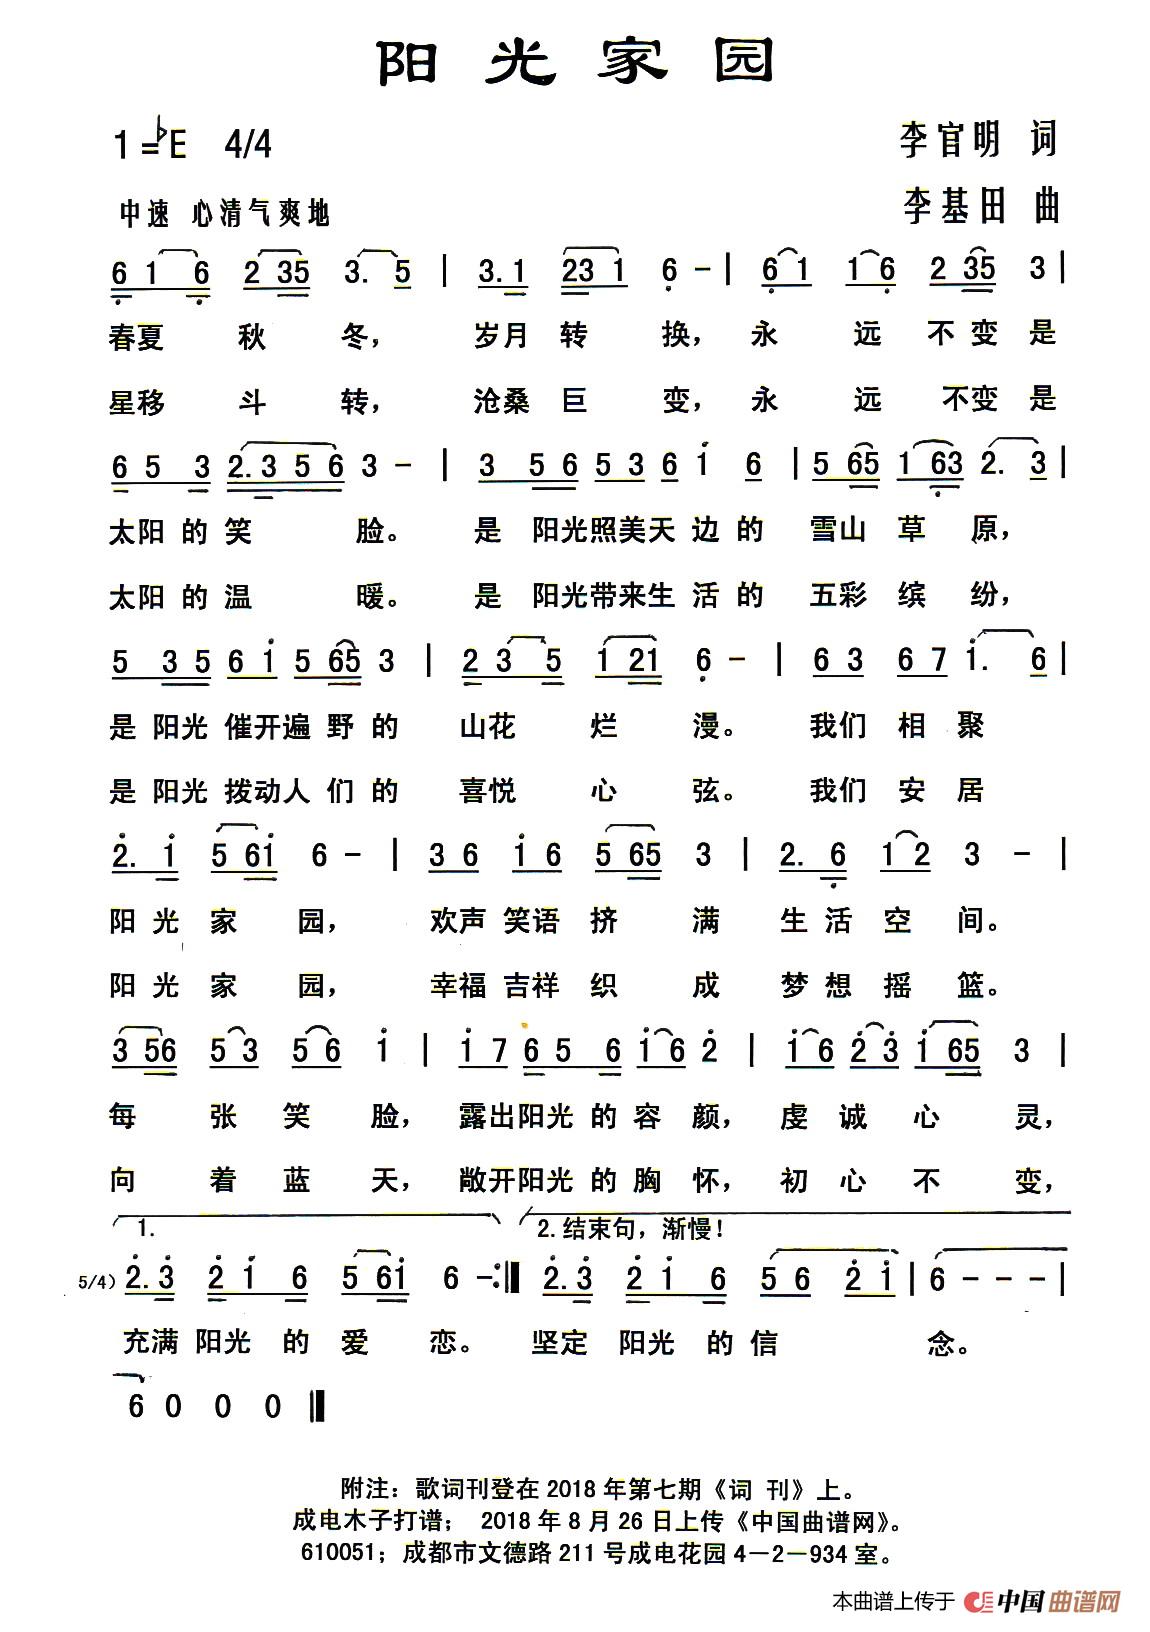 阳光家园
1=♭E 4/4 李官明 词
中速 心清气爽地 李基田 曲
6 1 6 2 35 3. 5 | 3.1 23 1 6 - | 6 1 1 6 2 35 3 |
春夏 秋 冬, 岁月 转 换, 永 远 不 变 是
星移 斗 转, 沧桑 巨 变, 永 远 不变 是
6 5 3 2.3 5 6 3 - | 3 5 6 5 3 6 i 6 | 5 65 1 63 2. 3 |
太阳 的 笑 脸。 是 阳光照美天 边 的 雪山 草 原,
太阳 的 温 暖。 是 阳光带来生 活 的 五彩 缤 纷,
5 3 5 6 i 5 65 3 | 2 3 5 1 21 6 - | 6 3 6 7 i. 6 |
是 阳光 催开遍 野 的 山花 烂 漫。 我们 相 聚
是 阳光 拨动人 们 的 喜悦 心 弦。 我们 安 居
2. i 5 6i 6 - | 3 6 i 6 5 65 3 | 2. 6 1 2 3 - |
阳 光 家 园, 欢声 笑语 挤 满 生 活 空 间。
阳 光 家 园, 幸福 吉祥 织 成 梦 想 摇 篮。
3 56 5 3 5 6 i | i 7 6 5 6 i 6 2 | i 6 2 3 i 65 3 |
每 张 笑 脸, 露出阳光 的 容 颜, 虔 诚 心 灵,
向 着 蓝 天, 敞开阳光 的 胸 怀, 初 心 不 变,
1. 2.结束句,渐慢!
5/4) 2.3 2 i 6 5 6i 6 - :‖ 2.3 2 i 6 5 6 2 i | 6 - - - |
充满 阳光 的 爱 恋。 坚定 阳光 的 信 念。
6 0 0 0 ‖
附注:歌词刊登在 2018 年第七期《词 刊》上。
成电木子打谱; 2018 年 8 月 26 日上传《中国曲谱网》。
610051;成都市文德路 211 号成电花园 4－2－934 室。
本曲谱上传于 中国曲谱网